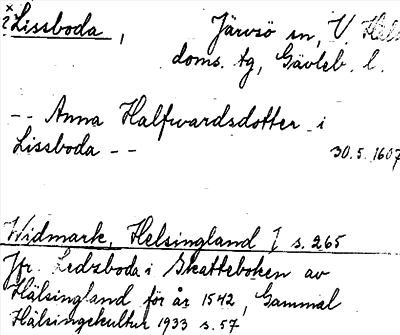 x
? Lissboda, Järvsö sn, V Hels
doms. tg, Gävleb. l.
-- Anna Halfwardsdotter i
Lissboda -- 30.5.1607
Widmark, Helsingland I s. 265
Jfr. Ledzboda i Skatteboken av
Hälsingland för år 1542, Gammal
Hälsingekultur 1933 s. 57